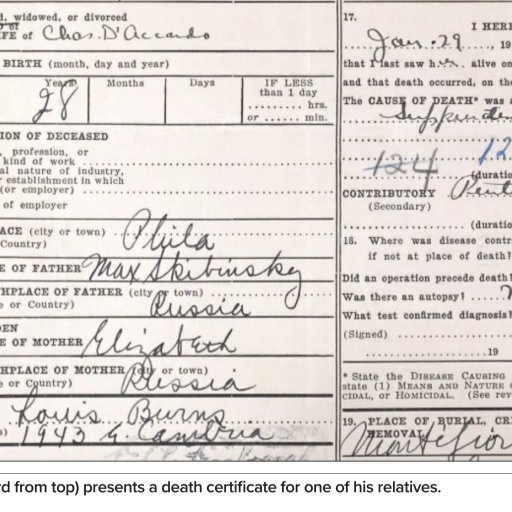 d, widowed, or divorced
of
IFE of Chas. D'Accardo
BIRTH (month, day and year)
Years
Months
Days
IF LESS
than 1 day
28
......... hrs.
or ...... min.
ION OF DECEASED
, profession, or
kind of work
al nature of industry,
establishment in which
(or employer)
of employer
ACE (city or town) Phila
Country)
E OF FATHER Max Skibinsky
HPLACE OF FATHER (city or town)
e or Country) Russia
DEN
E OF MOTHER Elizabeth
HPLACE OF MOTHER (city or town)
e or Country) Russia
Louis Burns
s) 1943 E. Cambria
17.
I HERE
Jan. 29, 19
that I last saw h er alive on
and that death occurred, on the
The CAUSE OF DEATH* was a
124
12
(duratio
CONTRIBUTORY
(Secondary)
(duratio
18. Where was disease contr
if not at place of death?
Did an operation precede death?
Was there an autopsy?
What test confirmed diagnosis?
(Signed)
19
* State the DISEASE CAUSING
state (1) MEANS AND NATURE O
CIDAL, or HOMICIDAL. (See rev
19. PLACE OF BURIAL, CRE
REMOVAL
Montefior
rd from top) presents a death certificate for one of his relatives.